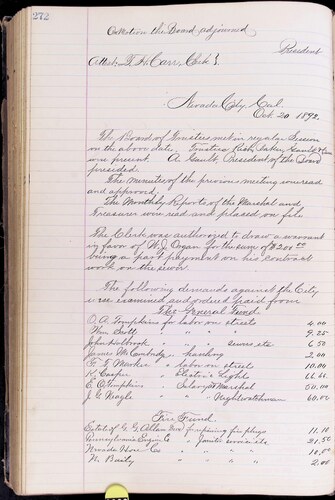 272
On motion the Board adjourned
President
Attest. T. H. Carr, Clerk
Nevada City, Cal.
Oct. 20 1892.
The Board of Trustees met in regular Session
on the above date. Trustees Rich, Baker, Gault &
were present. A. Gault, President of the Board
presided.
The minutes of the previous meeting were read
and approved.
The Monthly Reports of the Marshal and
Treasurer were read and placed on file
The Clerk was authorized to draw a warrant
in favor of W. J. Organ for the sum of $200.00
being a part payment on his contract
work on the sewer
The following demands against the City
were examined and ordered paid from
The General Fund.
O. A. Tompkins for labor on streets 4.00
Wm Scott " " " " 9.25
John Holbrook " " " sewers etc 6.50
James McCambridge " hauling 2.00
F. F. Marker " labor on streets 10.00
K. Casper " Electric Lights 66.66
E. O. Tompkins " Salary as Marshal 50.00
J. G. Neagle " " " Nightwatchman 60.00
Fire Fund.
Estate of G. G. Allan Decd for repairing fire plugs 11.10
Pennsylvania Engine Co " Janitor services etc. 21.50
Nevada Hose Co " " " " 10.50
W. Baity " " " 2.00